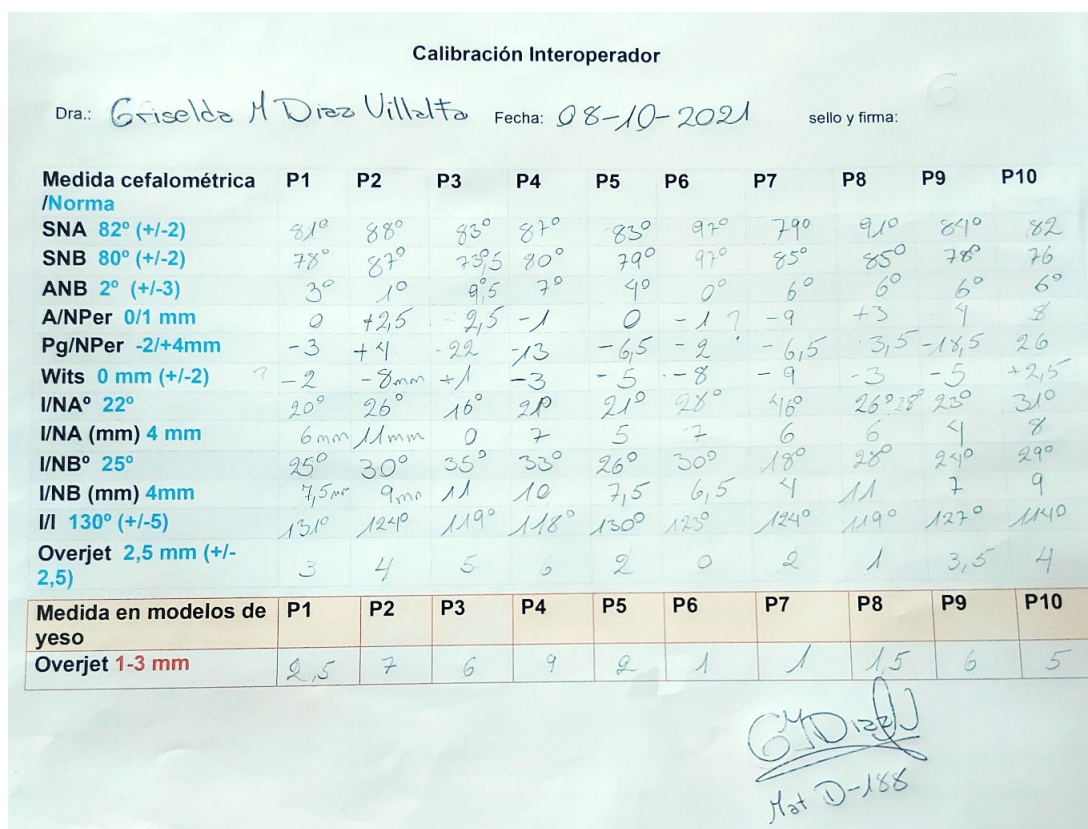 Calibración Interoperador
Dra.: Griselda M Diaz Villalta Fecha: 08-10-2021 sello y firma:
Medida cefalométrica P1 P2 P3 P4 P5 P6 P7 P8 P9 P10
/Norma
SNA 82º (+/-2) 81º 88º 83º 87º 83º 97º 79º 91º 84º 82
SNB 80º (+/-2) 78º 87º 73,5 80º 79º 97º 85º 85º 78º 76
ANB 2º (+/-3) 3º 1º 9,5 7º 4º 0º 6º 6º 6º 6º
A/NPer 0/1 mm 0 +2,5 -2,5 -1 0 -1? -9 +3 4 8
Pg/NPer -2/+4mm -3 +4 -22 -13 -6,5 -2 -6,5 -3,5 -18,5 26
Wits 0 mm (+/-2) ? -2 -8mm +1 -3 -5 -8 -9 -3 -5 +2,5
I/NAº 22º 20º 26º 16º 21º 21º 28º 46º 26º 28º 23º 31º
I/NA (mm) 4 mm 6mm 11mm 0 7 5 7 6 6 4 8
I/NBº 25º 25º 30º 35º 33º 26º 30º 18º 28º 24º 29º
I/NB (mm) 4mm 7,5mm 9mm 11 10 7,5 6,5 4 11 7 9
I/I 130º (+/-5) 131º 124º 119º 118º 130º 123º 124º 119º 127º 114º
Overjet 2,5 mm (+/- 3 4 5 6 2 0 2 1 3,5 4
2,5)
Medida en modelos de P1 P2 P3 P4 P5 P6 P7 P8 P9 P10
yeso
Overjet 1-3 mm 2,5 7 6 9 2 1 1 1,5 6 5
GMDiazV
Mat D-188